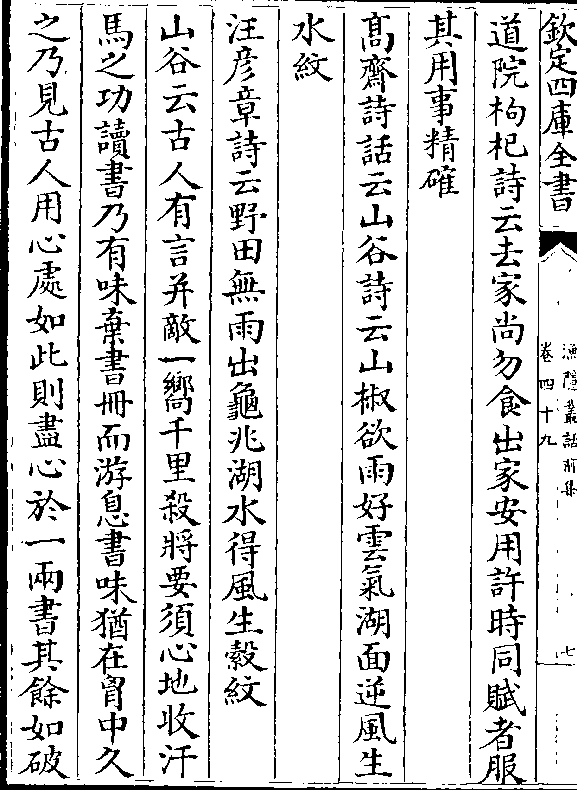 欽定四庫全書
漁隱叢話前集
卷四十九
七
道院枸杞詩云去家尚勿食出家安用許時同賦者服
其用事精確
髙齋詩話云山谷詩云山椒欲雨好雲氣湖面逆風生
水紋
汪彦章詩云野田無雨出龜兆湖水得風生縠紋
山谷云古人有言并敵一嚮千里殺將要須心地收汗
馬之功讀書乃有味棄書冊而游息書味猶在胷中久
之乃見古人用心處如此則盡心於一兩書其餘如破